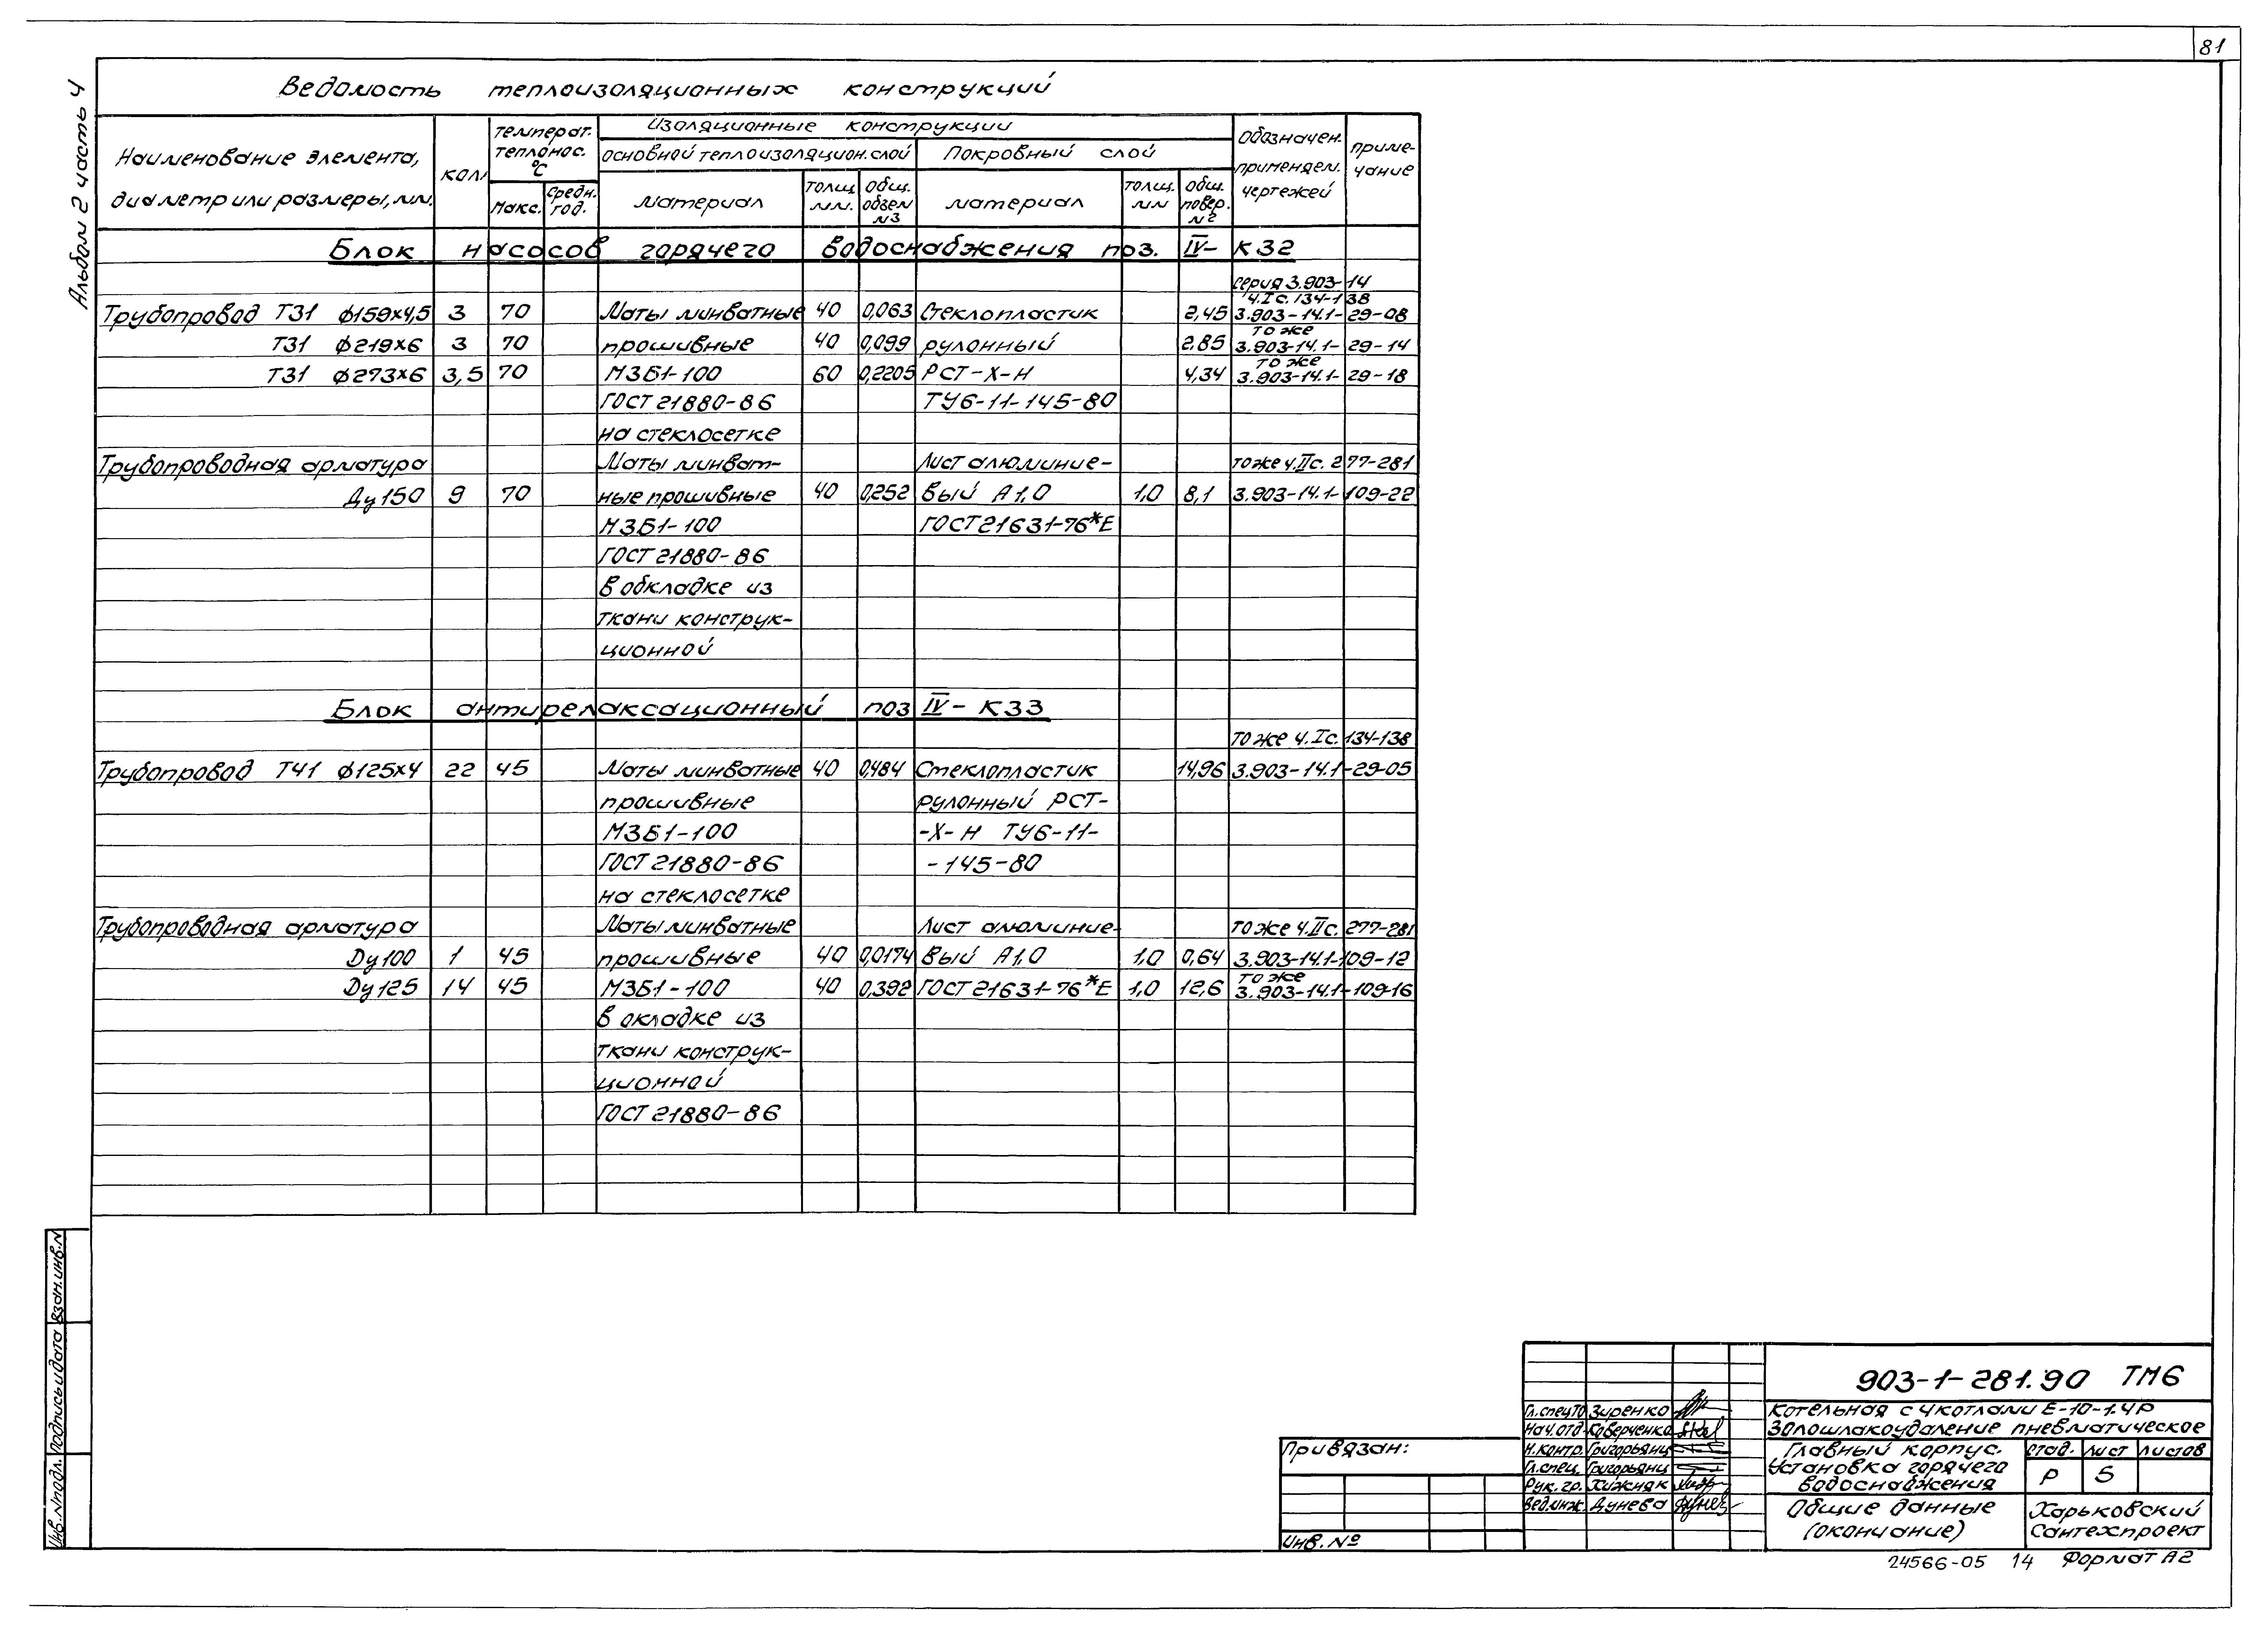 81
Альбом 2 часть 4
Ведомость теплоизоляционных конструкций
Наименование элемента, диаметр или размеры, мм.
кол.
температ. теплонос. °С
Макс.
Средн. год.
Изоляционные конструкции
основной теплоизоляцион. слой
Покровный слой
материал
толщ. мм.
общ. объем м3
материал
толщ. мм
общ. повер. м2
Обозначен. применяем. чертежей
приме- чание
Блок насосов горячего водоснабжения поз. IV- К32
серия 3.903-14
ч.I с. 134-138
Трубопровод Т31 ф159х4,5 3 70 Маты минватные 40 0,063 Стеклопластик 2,45 3.903-14.1-29-08
то же
Т31 ф219х6 3 70 прошивные 40 0,099 рулонный 2.85 3.903-14.1-29-14
то же
Т31 ф273х6 3,5 70 М3Б1-100 60 0,2205 РСТ-Х-Н 4,34 3.903-14.1-29-18
ГОСТ 21880-86 ТУ6-11-145-80
на стеклосетке
Трубопроводная арматура Маты минват- Лист алюминие- то же ч.II с. 277-281
Ду150 9 70 ные прошивные 40 0,252 вый А1,0 1,0 8,1 3.903-14.1-109-22
М3Б1-100 ГОСТ21631-76*Е
ГОСТ 21880-86
в обкладке из
ткани конструк-
ционной
Блок антирелаксационный поз IV- К33
то же ч.I с. 134-138
Трубопровод Т41 ф125х4 22 45 Маты минватные 40 0,484 Стеклопластик 14,96 3.903-14.1-29-05
прошивные рулонный РСТ-
М3Б1-100 -Х-Н ТУ6-11-
ГОСТ 21880-86 -145-80
на стеклосетке
Трубопроводная арматура Маты минватные Лист алюминие- то же ч.II с. 277-281
Ду100 1 45 прошивные 40 0,0174 вый А1.0 1.0 0,64 3.903-14.1-109-12
то же
Ду125 14 45 М3Б1-100 40 0,392 ГОСТ 21631-76*Е 1,0 12,6 3.903-14.1-109-16
в окладке из
ткани конструк-
ционной
ГОСТ 21880-86
Инв.№подл. Подпись и дата Взам.инв.№
Привязан:
Инв. №
Гл.спецТО Зиренко
Нач.отд. Каверченко
Н.контр. Григорьянц
Гл.спец. Григорьянц
Рук.гр. Хижняк
Вед.инж. Дунева
903-1-281.90 ТМ6
Котельная с 4 котлами Е-10-1.4Р
Золошлакоудаление пневматическое
Главный корпус.
Установка горячего
водоснабжения
стад. лист листов
Р 5
Общие данные
(окончание)
Харьковский
Сантехпроект
24566-05 14 Формат А2